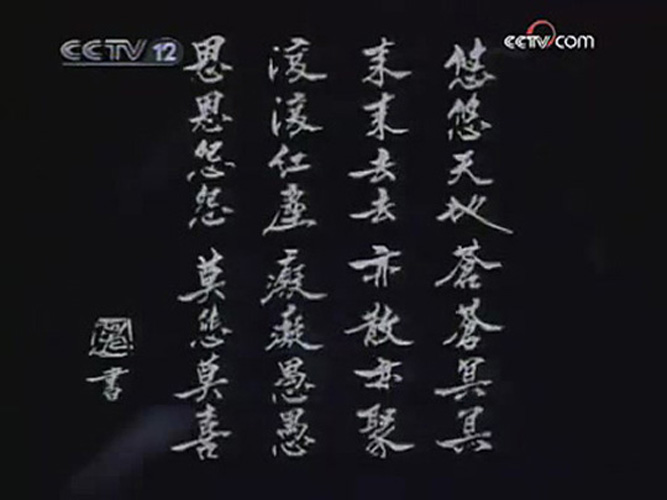 CCTV 12
cctv.com
悠悠天地 蒼蒼冥冥
来来去去 亦散亦聚
滚滚红塵 癡癡愚愚
恩恩怨怨 莫悲莫喜
書